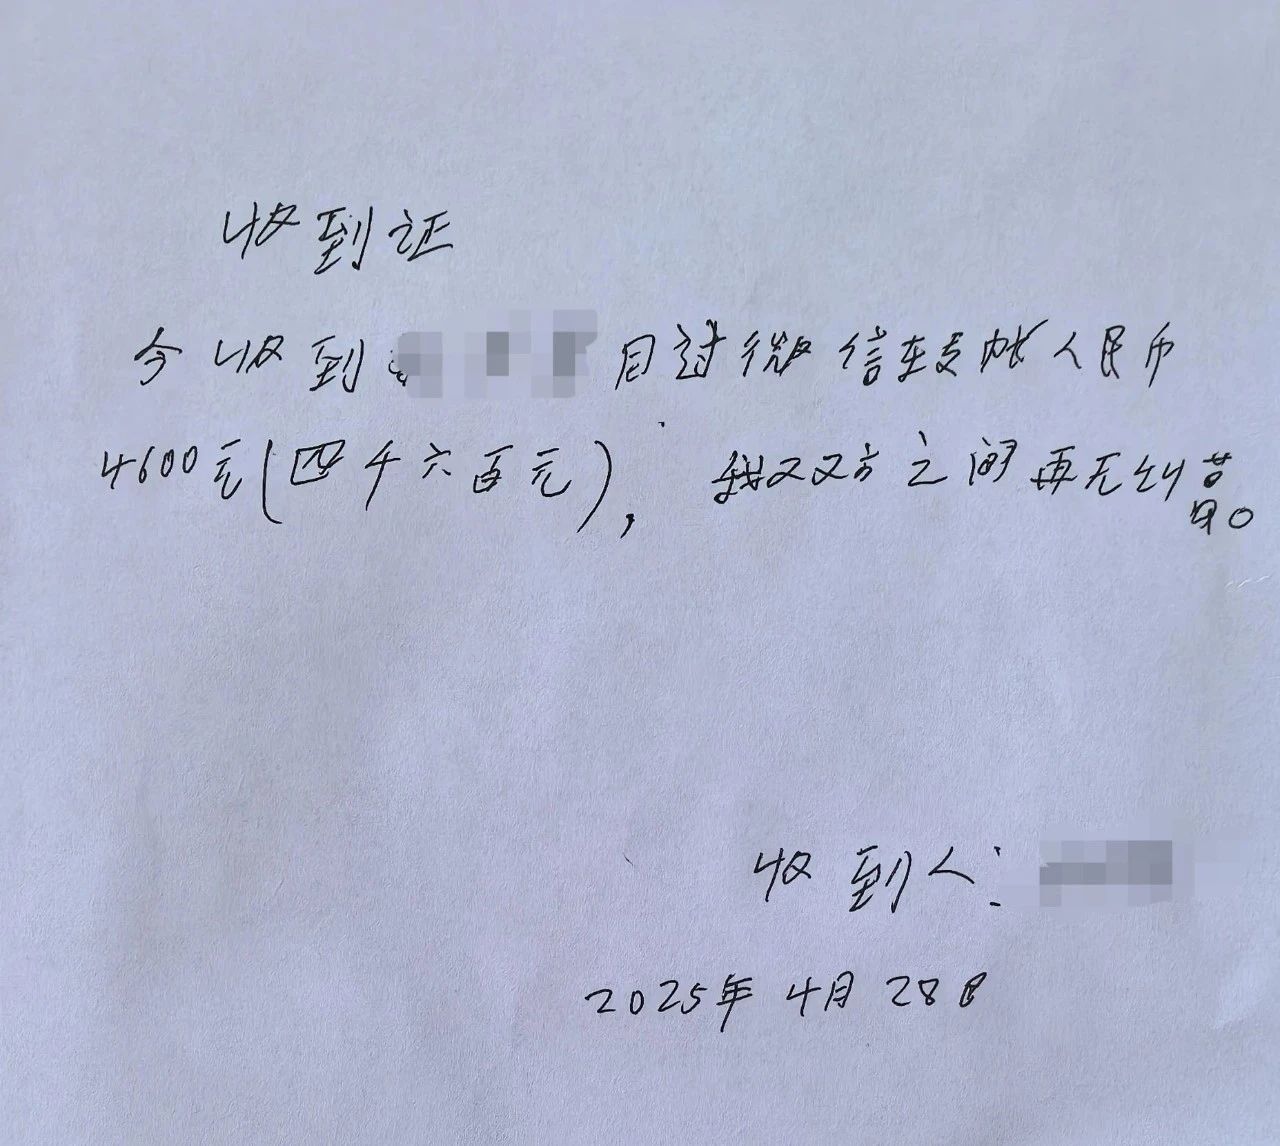 收到证
今收到 月过微信转帐人民币
4600元(四千六百元), 我双方之间再无纠葛。
收到人:
2025年4月28日